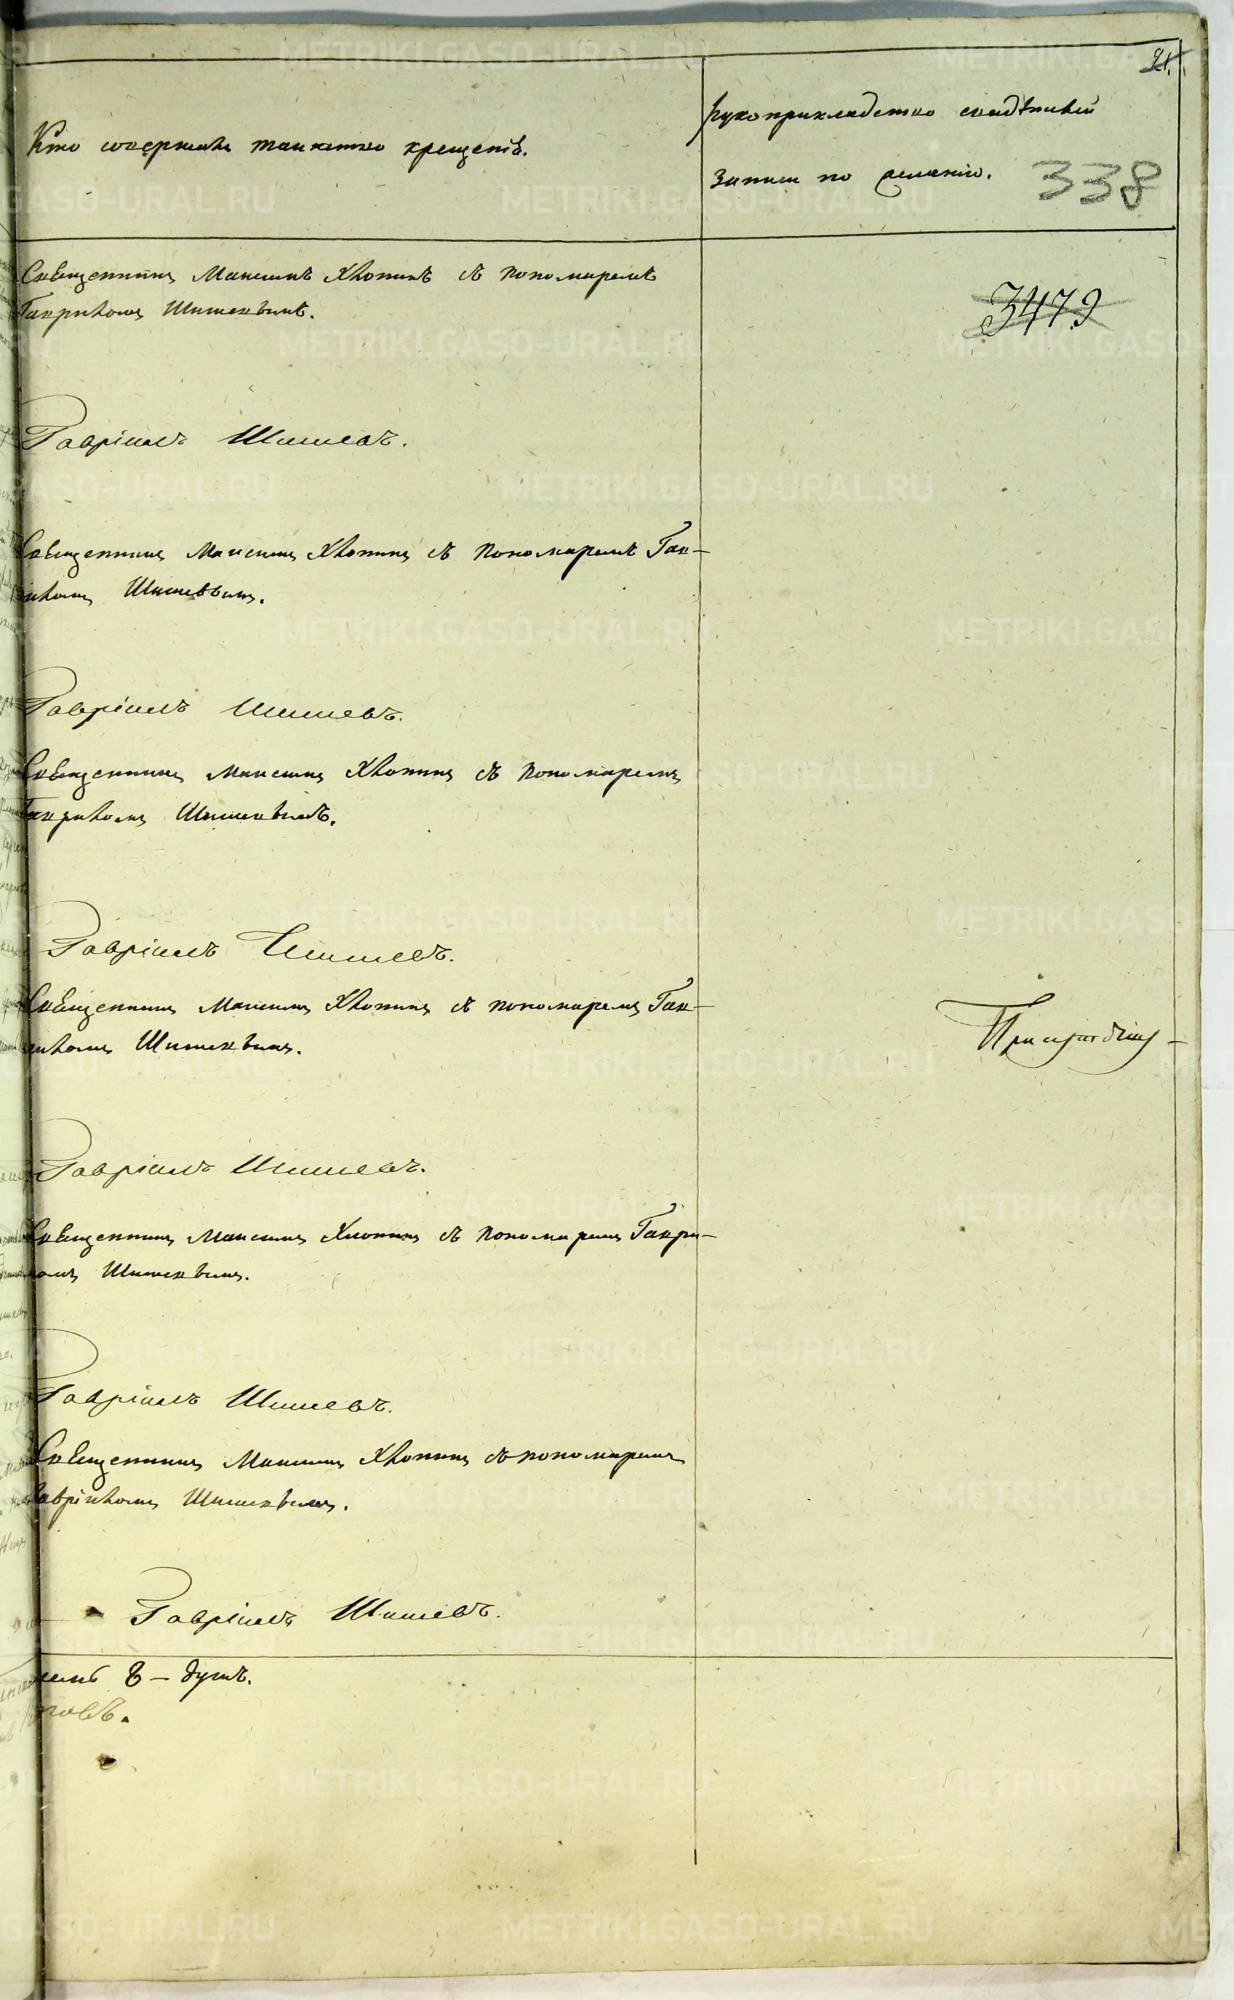 21.
Кто совершалъ таинство крещенія.
рукоприкладство свидѣтелей
записи по желанію.
338
Священникъ Максимъ Хлопинъ съ пономаремъ
Гавріиломъ Шишевымъ.
3479
Гавріилъ Шишевъ.
Священникъ Максимъ Хлопинъ съ пономаремъ Гав-
ріиломъ Шишевымъ.
Гавріилъ Шишевъ.
Священникъ Максимъ Хлопинъ съ пономаремъ
Гавріиломъ Шишевымъ.
Гавріилъ Шишевъ.
Священникъ Максимъ Хлопинъ съ пономаремъ Гав-
ріиломъ Шишевымъ.
Гавріилъ Шишевъ.
Священникъ Максимъ Хлопинъ съ пономаремъ Гаврі-
иломъ Шишевымъ.
Гавріилъ Шишевъ.
Священникъ Максимъ Хлопинъ съ пономаремъ
Гавріиломъ Шишевымъ.
Гавріилъ Шишевъ.
8 – душъ.
METRIKI.GASO-URAL.RU